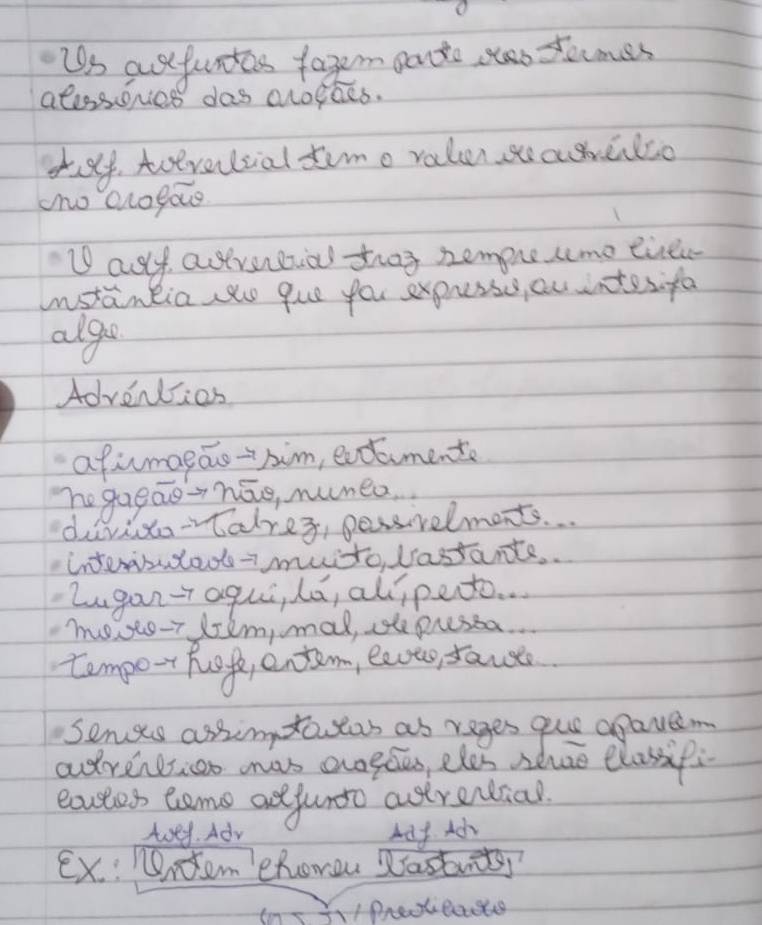 Os adjuntos fazem parte dos termos
acessórios das orações.
Adj. Adverbial tem o valor de advérbio
na oração
O adj. adverbial traz sempre uma circu-
nstância do que foi expresso, ou intesifa
algo.
Advérbios
afirmação → sim, certamente
negação → não, nunca...
dúvida → Talvez, possivelmente...
intensidade → muito, bastante...
Lugar → aqui, lá, alí, perto...
modo → bem, mal, depressa...
tempo → hoje, ontem, cedo, tarde...
Sendo assim, todas as vezes que aparecem
advérbios nas orações, eles serão classifi-
cados como adjunto adverbial.
Adj. Adv Adj. Adv
Ex.: Ontem choveu bastante,
Predicado